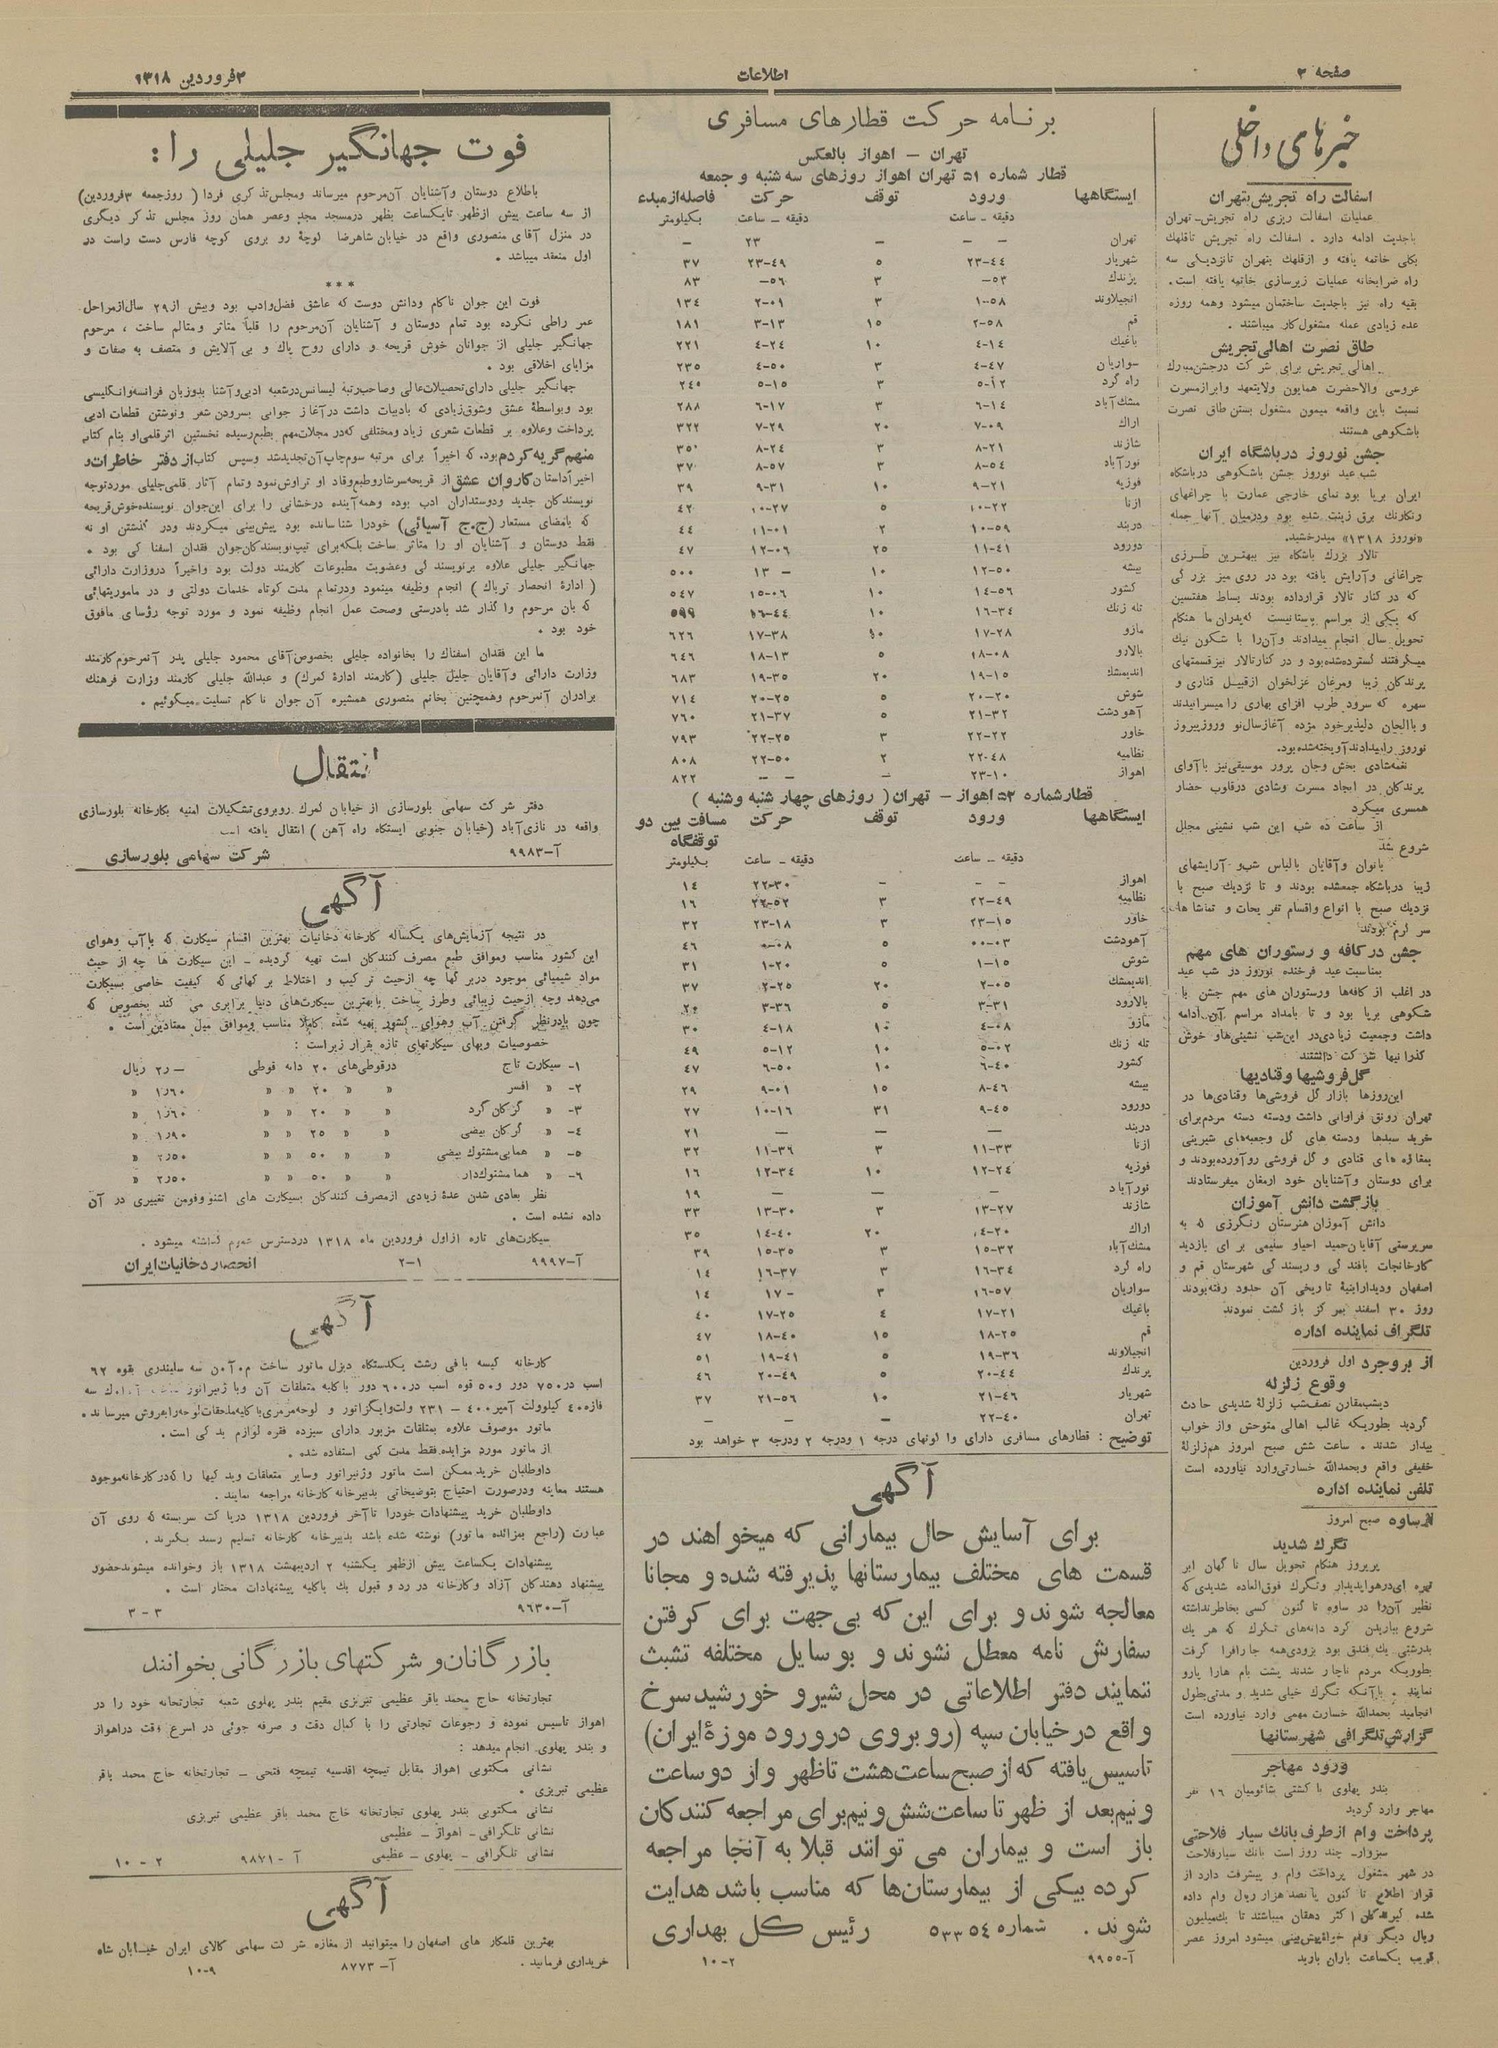 صفحه ۲
اطلاعات
۳فروردین ۱۳۱۸
خبرهای داخلی
اسفالت راه تجریش بتهران
عملیات اسفالت ریزی راه تجریش-تهران
باجدیت ادامه دارد . اسفالت راه تجریش تاقلهك
بکلی خاتمه یافته و ازقلهك بتهران تانزدیکی سه
راه ضرابخانه عملیات زیرسازی خاتمه یافته است.
بقیه راه نیز باجدیت ساختمان میشود وهمه روزه
عده زیادی عمله مشغول کار میباشند .
طاق نصرت اهالی تجریش
اهالی تجریش برای شرکت درجشن مبارك
عروسی والاحضرت همایون ولایتعهد وابراز مسرت
نسبت باین واقعه میمون مشغول بستن طاق نصرت
باشکوهی هستند
جشن نوروز درباشگاه ایران
شب عید نوروز جشن باشکوهی درباشگاه
ایران برپا بود نمای خارجی عمارت با چراغهای
رنگارنگ برق زینت شده بود ودرمیان آنها جمله
«نوروز ۱۳۱۸» میدرخشید.
تالار بزرك باشگاه نیز ببهترین طرزی
چراغانی وآرایش یافته بود در روی میز بزرگی
که در کنار تالار قرارداده بودند بساط هفتسین
که یکی از مراسم باستانیست که پدران ما هنگام
تحویل سال انجام میدادند وآن را با شگون نیك
میگرفتند گسترده شده بود و در کنار تالار نیز قسمتهای
پرندگان زیبا ومرغان غزلخوان ازقبیل قناری و
سهره که سرود طرب افزای بهاری را میسرائیدند
و باالحان دلپذیرخود مژده آغاز سال نو وروز پیروز
نوروز را میدادند آویخته شده بود.
نغمه شادی بخش وجان پرور موسیقی نیز با آوای
پرندگان در ایجاد مسرت وشادی درقلوب حضار
همسری میکرد
از ساعت ده شب این شب نشینی مجال
شروع شد
بانوان وآقایان بالباس شب و آرایشهای
زیبا درباشگاه جمعشده بودند و تا نزدیك صبح با
نزدیك صبح با انواع واقسام تفریحات و تماشاها
سرگرم بودند
جشن در کافه و رستوران های مهم
بمناسبت عید فرخنده نوروز در شب عید
در اغلب از کافه‌ها ورستوران های مهم جشن با
شکوهی برپا بود و تا بامداد مراسم آن ادامه
داشت وجمعیت زیادی در این شب نشینی ها و خوش
گذرانیها شرکت داشتند
گل فروشیها وقنادیها
این روزها بازار گل فروشی‌ها وقنادی‌ها در
تهران رونق فراوانی داشت ودسته دسته مردم برای
خرید سبدها ودسته های گل وجعبه‌های شیرینی
بمغازه های قنادی و گل فروشی روآورده بودند و
برای دوستان وآشنایان خود ارمغان میفرستادند
بازگشت دانش آموزان
دانش آموزان هنرستان رنگرزی که به
سرپرستی آقایان حمید احیاو سلیمی برای بازدید
کارخانجات بافندگی و ریسندگی شهرستان قم و
اصفهان ودیدار ابنیهٔ تاریخی آن حدود رفته بودند
روز ۳۰ اسفند بمرکز بازگشت نمودند
تلگراف نماینده اداره
از بروجرد اول فروردین
وقوع زلزله
دیشب مقارن نصف شب زلزلهٔ شدیدی حادث
گردید بطوریکه غالب اهالی متوحش و از خواب
بیدار شدند . ساعت شش صبح امروز هم زلزلهٔ
خفیفی واقع وبحمدالله خسارتی وارد نیاورده است
تلفن نماینده اداره
ازساوه صبح امروز
تگرگ شدید
پریروز هنگام تحویل سال ناگهان ابر
تیره ای در هوا پدیدار وتگرك فوق‌العاده شدیدی که
نظیر آن را در ساوه تا کنون کسی بخاطر نداشته
شروع ببارید‌ن کرد دانه‌های تگرگ که هر یك
بدرشتی یك فندق بود بزودی همه جارا فرا گرفت
بطوریکه مردم ناچار شدند پشت بام هارا پارو
نمایند . با آنکه تگرك خیلی شدید و مدتی بطول
انجامید بحمدالله خسارت مهمی وارد نیاورده است
گزارش تلگرافی شهرستانها
ورود مهاجر
بندر پهلوی با کشتی شائومیان ۱۶ نفر
مهاجر وارد گردید
پرداخت وام ازطرف بانك سیار فلاحتی
سبزوار- چند روز است بانك سیار فلاحت
در شهر مشغول پرداخت وام و پیشرفت دارد از
قرار اطلاع تا کنون پانصد هزار ریال وام داده
شده گیرندگان اکثر دهقان میباشند تا یك میلیون
ریال دیگر وام پیش‌بینی میشود امروز عصر
قریب یکساعت باران بارید
برنامه حرکت قطارهای مسافری
تهران - اهواز بالعکس
قطار شماره ۵۱ تهران اهواز روزهای سه شنبه و جمعه
ایستگاهها ورود توقف حرکت فاصله از مبدء
دقیقه - ساعت دقیقه - ساعت بکیلومتر
تهران — — ۲۳ —
شهریار ۲۳-۴۴ ۵ ۲۳-۴۹ ۳۷
پرندك ۵۳- ۳ ۵۶- ۸۳
انجیلاوند ۱-۵۸ ۳ ۲-۰۱ ۱۳۴
قم ۲-۵۸ ۱۵ ۳-۱۳ ۱۸۱
باغیك ۴-۱۴ ۱۰ ۴-۲۴ ۲۲۱
سواریان ۴-۴۷ ۳ ۴-۵۰ ۲۳۵
راه گرد ۵-۱۲ ۳ ۵-۱۵ ۲۴۵
مشك آباد ۶-۱۴ ۳ ۶-۱۷ ۲۸۸
اراك ۷-۰۹ ۲۰ ۷-۲۹ ۳۲۲
شازند ۸-۲۱ ۳ ۸-۲۴ ۳۵۰
نورآباد ۸-۵۴ ۳ ۸-۵۷ ۳۷
فوزیه ۹-۲۱ ۱۰ ۹-۳۱ ۳۹
ازنا ۱۰-۲۲ ۵ ۱۰-۲۷ ۴۲
دربند ۱۰-۵۹ ۲ ۱۱-۰۱ ۴۴
دورود ۱۱-۴۱ ۲۵ ۱۲-۰۶ ۴۷
بیشه ۱۲-۵۰ ۱۰ ۱۳ - ۵۰۰
کشور ۱۴-۵۶ ۱۰ ۱۵-۰۶ ۵۴۷
تله زنك ۱۶-۳۴ ۱۰ ۱۶-۴۴ ۵۹۹
مازو ۱۷-۲۸ ۱۰ ۱۷-۳۸ ۶۲۶
بالارو ۱۸-۰۸ ۵ ۱۸-۱۳ ۶۴۶
اندیمشك ۱۹-۱۵ ۲۰ ۱۹-۳۵ ۶۸۳
شوش ۲۰-۲۰ ۵ ۲۰-۲۵ ۷۱۴
آهودشت ۲۱-۳۲ ۵ ۲۱-۳۷ ۷۶۰
خاور ۲۲-۲۲ ۳ ۲۲-۲۵ ۷۹۳
نظامیه ۲۲-۴۸ ۲ ۲۲-۵۰ ۸۰۸
اهواز ۲۳-۱۰ — — ۸۲۲
قطار شماره ۵۲ اهواز - تهران ( روزهای چهار شنبه و شنبه )
ایستگاهها ورود توقف حرکت مسافت بین دو
توقفگاه
دقیقه - ساعت دقیقه - ساعت بکیلومتر
اهواز — — ۲۲-۳۰ ۱۴
نظامیه ۲۲-۴۹ ۳ ۲۲-۵۲ ۱۶
خاور ۲۳-۱۵ ۳ ۲۳-۱۸ ۳۲
آهودشت ۰۰-۰۳ ۵ ۰-۰۸ ۴۶
شوش ۱-۱۵ ۵ ۱-۲۰ ۳۱
اندیمشك ۲-۰۵ ۲۰ ۲-۲۵ ۳۷
بالارود ۳-۳۱ ۵ ۳-۳۶ ۲۰
مازو ۴-۰۸ ۱۰ ۴-۱۸ ۳۰
تله زنك ۵-۰۲ ۱۰ ۵-۱۲ ۴۹
کشور ۶-۴۰ ۱۰ ۶-۵۰ ۴۷
بیشه ۸-۴۶ ۱۵ ۹-۰۱ ۲۹
دورود ۹-۴۵ ۳۱ ۱۰-۱۶ ۲۷
دربند — — — ۲۱
ازنا ۱۱-۳۳ ۳ ۱۱-۳۶ ۳۲
فوزیه ۱۲-۲۴ ۱۰ ۱۲-۳۴ ۱۶
نورآباد — — — ۱۹
شازند ۱۳-۲۷ ۳ ۱۳-۳۰ ۳۳
اراك ۱۴-۲۰ ۲۰ ۱۴-۴۰ ۳۵
مشك آباد ۱۵-۳۲ ۳ ۱۵-۳۵ ۳۹
راه گرد ۱۶-۳۴ ۳ ۱۶-۳۷ ۱۴
سواریان ۱۶-۵۷ ۳ ۱۷- ۱۴
باغیك ۱۷-۲۱ ۴ ۱۷-۲۵ ۴۰
قم ۱۸-۲۵ ۱۵ ۱۸-۴۰ ۴۷
انجیلاوند ۱۹-۳۶ ۵ ۱۹-۴۱ ۵۱
پرندك ۲۰-۴۴ ۵ ۲۰-۴۹ ۴۶
شهریار ۲۱-۴۶ ۱۰ ۲۱-۵۶ ۳۷
تهران ۲۲-۴۰ — — —
توضیح : قطارهای مسافری دارای واگونهای درجه ۱ ودرجه ۲ ودرجه ۳ خواهد بود
آگهی
برای آسایش حال بیمارانی که میخواهند در
قسمت های مختلف بیمارستانها پذیرفته شده و مجانا
معالجه شوند و برای این که بی‌جهت برای گرفتن
سفارش نامه معطل نشوند و بوسایل مختلفه تشبث
ننمایند دفتر اطلاعاتی در محل شیر و خورشید سرخ
واقع درخیابان سپه (روبروی درورود موزهٔ ایران)
تاسیس یافته که از صبح ساعت هشت تا ظهر و از دوساعت
ونیم بعد از ظهر تا ساعت شش و نیم برای مراجعه کنندگان
باز است و بیماران می توانند قبلا به آنجا مراجعه
کرده بیکی از بیمارستان‌ها که مناسب باشد هدایت
شوند. شماره ۵۳۳۵۴ رئیس کل بهداری
آ-۹۹۵۵ ۱۰-۲
فوت جهانگیر جلیلی را:
باطلاع دوستان وآشنایان آن مرحوم میرساند ومجلس تذکری فردا ( روز جمعه ۳فروردین)
از سه ساعت پیش ازظهر تایکساعت بظهر درمسجد مجد وعصر همان روز مجلس تذکر دیگری
در منزل آقای منصوری واقع در خیابان شاهرضا کوچهٔ رو بروی کوچه فارس دست راست در
اول منعقد میباشد .
***
فوت این جوان ناکام ودانش دوست که عاشق فضل وادب بود وبیش از ۲۹ سال از مراحل
عمر راطی نکرده بود تمام دوستان و آشنایان آن مرحوم را قلباً متاثر ومتالم ساخت ، مرحوم
جهانگیر جلیلی از جوانان خوش قریحه و دارای روح پاك و بی آلایش و متصف به صفات و
مزایای اخلاقی بود .
جهانگیر جلیلی دارای تحصیلات عالی وصاحب رتبهٔ لیسانس درشعبه ادبی وآشنا بدوزبان فرانسه وانگلیسی
بود وبواسطهٔ عشق وشوق زیادی که بادبیات داشت درآغاز جوانی بسرودن شعر ونوشتن قطعات ادبی
پرداخت وعلاوه بر قطعات شعری زیاد ومختلفی که در مجلات مهم بطبع رسیده نخستین اثر قلمی او بنام کتاب
منهم گریه کردم بود، که اخیراً برای مرتبه سوم چاپ آن تجدید شد وسپس کتاب از دفتر خاطرات و
اخیراً داستان کاروان عشق از قریحه سرشار وطبع وقاد او تراوش نمود وتمام آثار قلمی جلیلی موردتوجه
نویسندگان جدید ودوستداران ادب بوده وهمه آینده درخشانی را برای این جوان نویسنده خوش قریحه
که بامضای مستعار (ج.ج آسیائی) خودرا شناسانده بود پیش بینی میکردند ودر گذشتن او نه
فقط دوستان و آشنایان او را متاثر ساخت بلکه برای تیپ نویسندگان جوان فقدان اسفناکی بود .
جهانگیر جلیلی علاوه برنویسندگی وعضویت مطبوعات کارمند دولت بود واخیراً دروزارت دارائی
( ادارهٔ انحصار تریاك ) انجام وظیفه مینمود ودرتمام مدت کوتاه خدمات دولتی و در ماموریتهائی
که بآن مرحوم واگذار شد بادرستی وصحت عمل انجام وظیفه نمود و مورد توجه رؤسای مافوق
خود بود .
ما این فقدان اسفناك را بخانواده جلیلی بخصوص آقای محمود جلیلی پدر آنمرحوم کارمند
وزارت دارائی و آقایان جلیل جلیلی (کارمند ادارهٔ گمرك) و عبدالله جلیلی کارمند وزارت فرهنگ
برادران آنمرحوم وهمچنین بخانم منصوری همشیره آن جوان ناکام تسلیت میگوئیم .
انتقال
دفتر شرکت سهامی بلورسازی از خیابان گمرك روبروی تشکیلات امنیه بکارخانه بلورسازی
واقعه در نازی آباد (خیابان جنوبی ایستگاه راه آهن ) انتقال یافته است
آ-۹۹۸۳ شرکت سهامی بلورسازی
آگهی
در نتیجه آزمایش‌های یکساله کارخانه دخانیات بهترین اقسام سیگارت که باآب وهوای
این کشور مناسب وموافق طبع مصرف کنندگان است تهیه گردیده - این سیگارت ها چه از حیث
مواد شیمیائی موجود دربرگها چه ازحیث ترکیب و اختلاط برگهائی که کیفیت خاصی بسیگارت
می‌دهد وچه ازحیث زیبائی وطرز ساخت بابهترین سیگارت‌های دنیا برابری می کند بخصوص که
چون بادرنظر گرفتن آب وهوای کشور تهیه شده کاملا مناسب وموافق میل معتادین است .
خصوصیات وبهای سیگارتهای تازه بقرار زیر است :
۱- سیگارت تاج درقوطی‌های ۲۰ دانه قوطی ۲ر- ریال
۲- « افسر « « ۲۰ « « ۱ر۶۰ «
۳- « گرگان گرد « « ۲۰ « « ۱ر۶۰ «
۴- « گرگان بیضی « « ۲۵ « « ۱ر۹۰ «
۵- « همایی مشتوك بیضی « « ۵۰ « « ۲ر۵۰ «
۶- « هما مشتوك دار « « ۵۰ « « ۲ر۵۰ «
نظر بعادی شدن عدهٔ زیادی ازمصرف کنندگان بسیگارت های اشنو وفومن تغییری در آن
داده نشده است .
سیگارت‌های تازه ازاول فروردین ماه ۱۳۱۸ دردسترس عموم گذاشته میشود .
آ-۹۹۹۷ ۲-۱ انحصار دخانیات ایران
آگهی
کارخانه کیسه بافی رشت یکدستگاه دیزل ماتور ساخت م.آ.ن سه سلیندری بقوه ۶۲
اسب در۷۵۰ دور و۵۰ قوه اسب در۶۰۰ دور باکلیه متعلقات آن وبا ژنراتور
فازه۴۰ کیلووات آمپر۴۰۰ - ۲۳۱ ولت وایگزاتور و لوحه مرمری باکلیه ملحقات لوحه را بفروش میرساند .
ماتور موصوف علاوه بمتلقات مزبور دارای سیزده فقره لوازم یدکی است .
از ماتور مورد مزایده فقط مدت کمی استفاده شده .
داوطلبان خرید ممکن است ماتور وژنراتور وسایر متعلقات ویدکیها را که درکارخانه موجود
هستند معاینه ودرصورت احتیاج بتوضیحاتی بدبیرخانه کارخانه مراجعه نمایند .
داوطلبان خرید پیشنهادات خودرا تاآخر فروردین ۱۳۱۸ درپاکت سربسته که روی آن
عبارت (راجع بمزائده ماتور) نوشته شده باشد بدبیرخانه کارخانه تسلیم رسید بگیرند .
پیشنهادات یکساعت پیش ازظهر یکشنبه ۲ اردیبهشت ۱۳۱۸ باز وخوانده میشود حضور
پیشنهاد دهندگان آزاد وکارخانه در رد و قبول یك یاکلیه پیشنهادات مختار است .
آ-۹۶۳۰ ۳-۳
بازرگانان و شرکتهای بازرگانی بخوانند
تجارتخانه حاج محمد باقر عظیمی تبریزی مقیم بندر پهلوی شعبه تجارتخانه خود را در
اهواز تاسیس نموده و رجوعات تجارتی را با کمال دقت و صرفه جوئی در اسرع وقت دراهواز
و بندر پهلوی انجام میدهد :
نشانی مکتوبی اهواز مقابل تیمچه اقدسیه تیمچه فتحی - تجارتخانه حاج محمد باقر
عظیمی تبریزی .
نشانی مکتوبی بندر پهلوی تجارتخانه حاج محمد باقر عظیمی تبریزی
نشانی تلگرافی - اهواز - عظیمی
نشانی تلگرافی - پهلوی - عظیمی آ-۹۸۷۱ ۱۰-۲
آگهی
بهترین قلمکار های اصفهان را میتوانید از مغازه شرکت سهامی کالای ایران خیابان شاه
خریداری فرمائید . آ-۸۷۷۳ ۱۰-۹